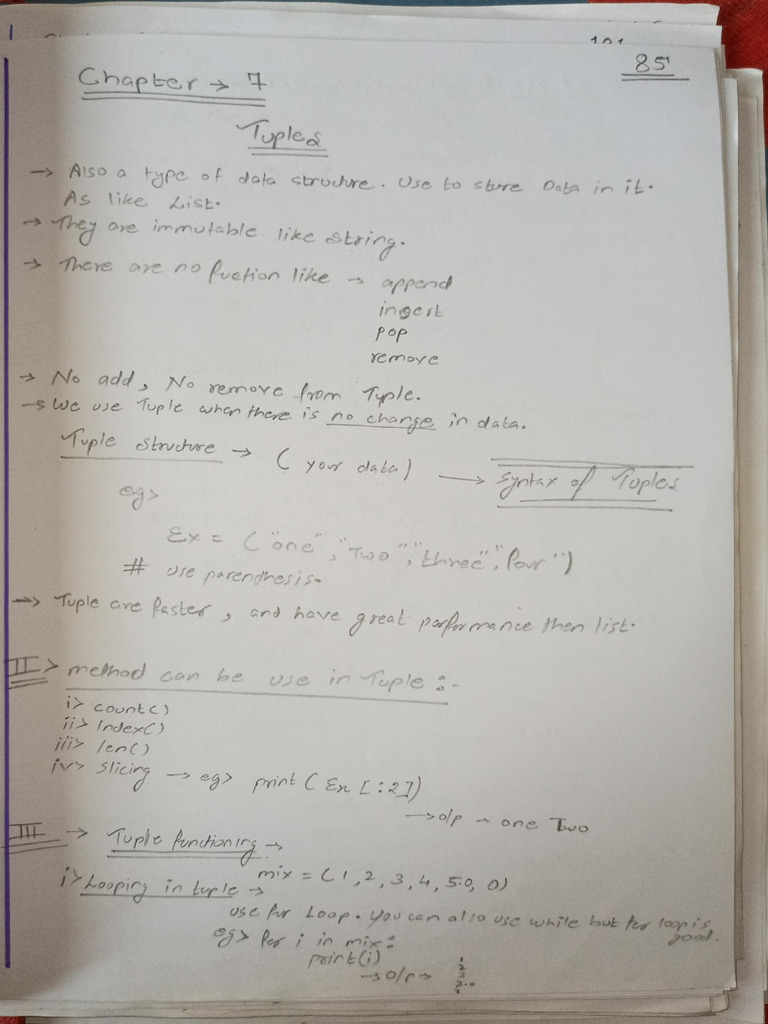 85
Chapter → 7
Tuples
→ Also a type of data structure. Use to store Data in it.
As like List.
→ They are immutable like String.
→ There are no fuction like → append
insert
pop
remove
→ No add, No remove from Tuple.
→ We use Tuple when there is no change in data.
Tuple Structure → ( your data) → Syntax of Tuples
eg>
Ex = ("one", "Two", "three", "four")
# use parenthesis.
→ Tuple are faster, and have great performance then list.
II> method can be use in Tuple :-
i> count()
ii> Index()
iii> len()
iv> slicing → eg> print (Ex [:2])
→ o/p → one Two
III → Tuple functioning →
mix = (1, 2, 3, 4, 5.0, 0)
i> Looping in tuple →
use for Loop. You can also use while but for loop is
good.
eg> for i in mix:
print(i)
→ o/p →